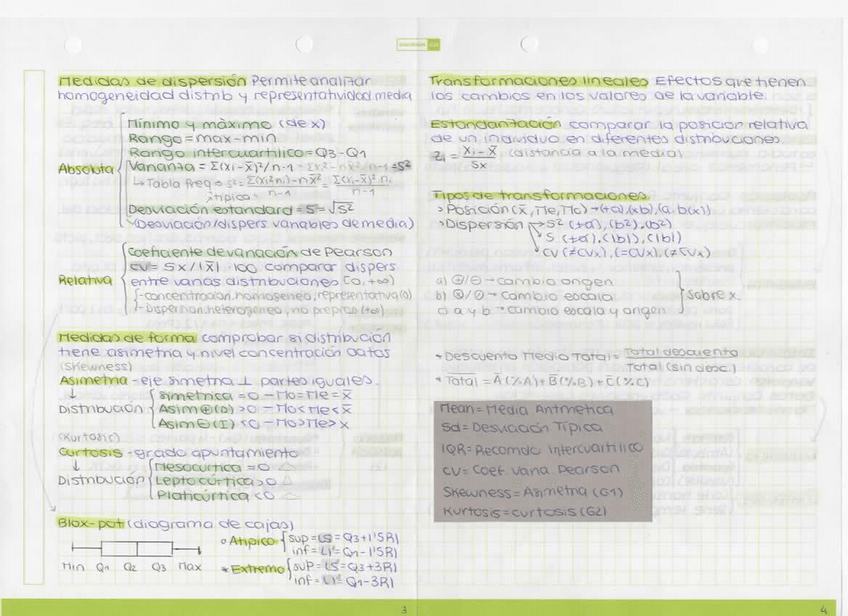 Medidas de dispersión Permite analizar
homogeneidad distrib y representatividad media
Absoluta
Mínimo y máximo (de x)
Rango = max-min
Rango intercuartílico = Q3-Q1
Varianza = Σ(xi-x̄)²/n-1 = Σx²-nx̄²/n-1 = S²
↳ Tabla freq → S² = Σ(xi²ni)-nx̄²/n-1 = Σ(xi-x̄)²·ni/n-1
típica
Desviación estandard = S = √S²
(Desviación/dispers variables de media)
Relativa
Coeficiente de variación de Pearson
CV = Sx/|x̄| ·100 comparar dispers
entre varias distribuciones [0,+∞)
-concentración, homogeneo, representativa (0)
-Dispersion, heterogeneo, no repres (+∞)
Medidas de forma comprobar si distribución
tiene asimetria y nivel concentración datos
(Skewness)
Asimetria - eje simetria ⊥ partes iguales.
↓
Distribución
Simetrica = 0 - Mo = Me = x̄
Asim ⊕ (D) > 0 - Mo < Me < x̄
Asim ⊖ (I) < 0 - Mo > Me > x
(Kurtosis)
Curtosis - grado apuntamiento
↓
Distribución
Mesocúrtica = 0
Leptocúrtica > 0
Platicúrtica < 0
Blox-pot (diagrama de cajas)
Min Q1 Q2 Q3 Max
° Atipico
sup = LS = Q3+1'5RI
inf = LI = Q1-1'5RI
* Extremo
sup = LS = Q3+3RI
inf = LI = Q1-3RI
3
Transformaciones lineales Efectos que tienen
los cambios en los valores de la variable.
Estandarización comparar la posicion relativa
de un individuo en diferentes distribuciones
zi = xi-x̄/Sx (distancia a la media)
Tipos de transformaciones
> Posición (x̄, Me, Mo) → (+a), (xb), (a+b(x))
> Dispersión → S² (≠a), (b²), (b²)
S (≠a), (|b|), (|b|)
CV (≠CVx), (=CVx), (≠CVx)
a) ⊕/⊖ → cambio origen
b) ⊗/⊘ → cambio escala
c) a y b → cambio escala y origen
sobre x
* Descuento Medio Total = Total descuento/Total (sin desc.)
* Total = A̅(%A) + B̅(%B) + C̅(%C)
Mean = Media Aritmetica
Sd = Desviación Típica
IQR = Recorrido Intercuartílico
CV = Coef. Varia. Pearson
Skewness = Asimetria (G1)
Kurtosis = curtosis (G2)
4